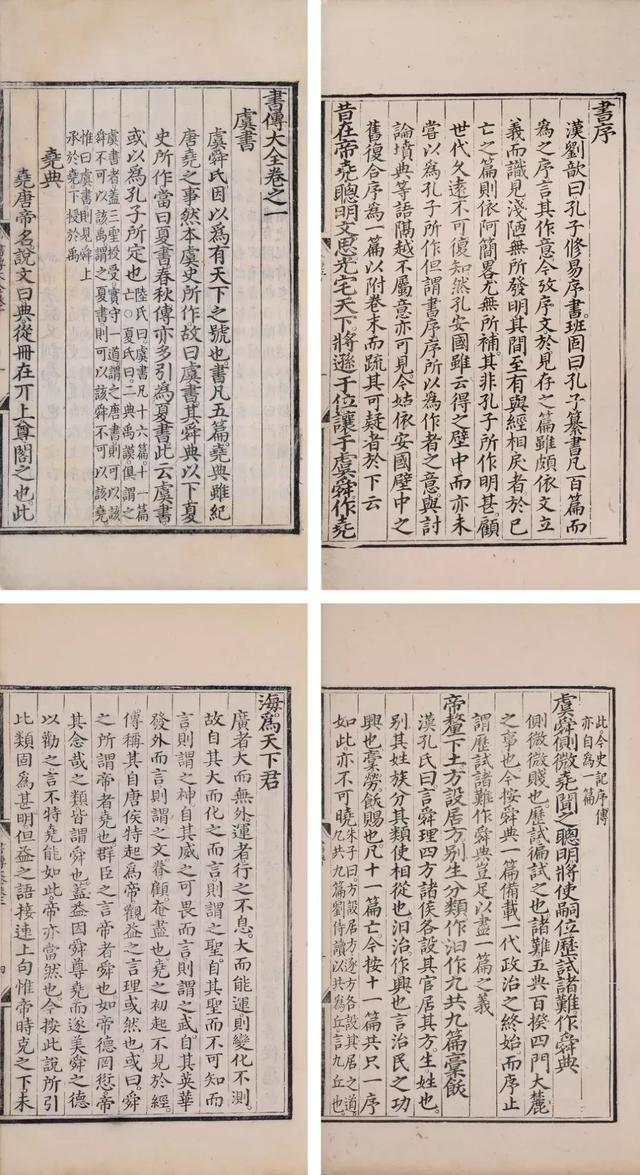 書傳大全卷之一
虞書
虞舜氏因以為有天下之號也書凡五篇堯典雖紀
唐堯之事然本虞史所作故曰虞書其舜典以下夏
史所作當曰夏書春秋傳亦多引為夏書此云虞書
或以為孔子所定也
陸氏曰虞書凡十六篇十一篇
亡○夏氏曰二典禹謨俱謂之
虞書者蓋三聖授受實守一道謂之唐書則可以該
舜不可以該禹謂之夏書則可以該舜不可以該堯
惟曰虞書則見舜上
承於堯下授於禹
堯典
堯唐帝名說文曰典從冊在丌上尊閣之也此
書序
漢劉歆曰孔子修易序書班固曰孔子纂書凡百篇而
為之序言其作意今攷序文於見存之篇雖頗依文立
義而識見淺陋無所發明其間至有與經相戾者於已
亡之篇則依阿簡畧尤無所補其非孔子所作明甚顧
世代久遠不可復知然孔安國雖云得之壁中而亦未
嘗以為孔子所作但謂書序序所以為作者之意與討
論墳典等語隔越不屬意亦可見今姑依安國壁中之
舊復合序為一篇以附卷末而疏其可疑者於下云
昔在帝堯聰明文思光宅天下將遜于位讓于虞舜作堯
海為天下君
廣者大而無外運者行之不息大而能運則變化不測
故自其大而化之而言則謂之聖自其聖而不可知而
言則謂之神自其威之可畏而言則謂之武自其英華
發外而言則謂之文眷顧奄盡也堯之初起不見於經
傳稱其自唐侯特起為帝觀益之言理或然也或曰舜
之所謂帝者堯也群臣之言帝者舜也如帝德罔愆帝
其念哉之類皆謂舜也蓋益因舜尊堯而遂美舜之德
以勸之言不特堯能如此帝亦當然也今按此說所引
比類固為甚明但益之語接連上句惟帝時克之下未
此今史記序傳
亦自為一篇
虞舜側微堯聞之聰明將使嗣位歷試諸難作舜典
側微微賤也歷試徧試之也諸難五典百揆四門大麓
之事也今按舜典一篇備載一代政治之終始而序止
謂歷試諸難作舜典豈足以盡一篇之義
帝釐下土方設居方別生分類作汨作九共九篇槀飫
漢孔氏曰言舜理四方諸侯各設其官居其方生姓也
別其姓族分其類使相從也汨治作興也言治民之功
興也槀勞飫賜也凡十一篇亡今按十一篇共只一序
如此亦不可曉
朱子曰方設居方逐方各設其居之道
九共九篇劉侍讀以共為丘言九丘也